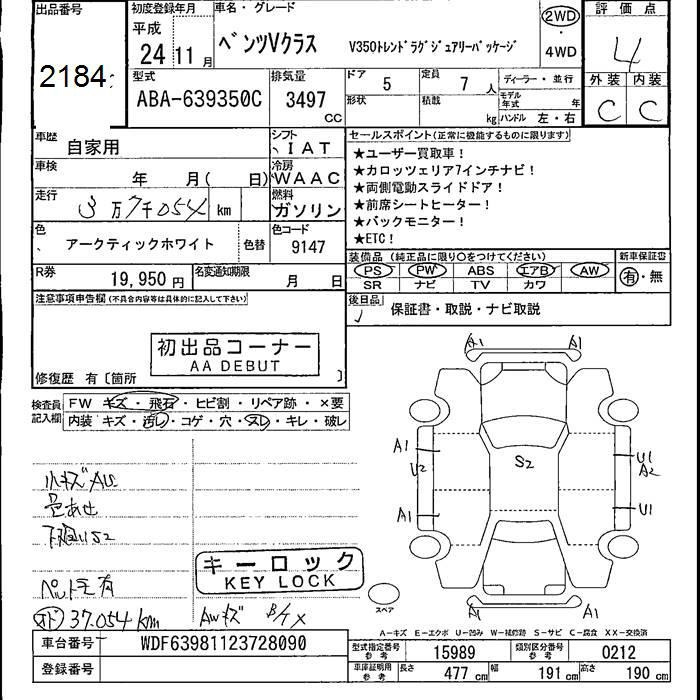 出品番号
2184
初度登録年月
平成
24 11 月
車名・グレード
ベンツVクラス V350トレンドラグジュアリーパッケージ
2WD
・
4WD
評価点
4
外装 内装
C C
型式
ABA-639350C
排気量
3497 CC
ドア 5
形状
定員 7 人
積載 kg
ディーラー・並行
モデル年式 年
ハンドル 左・右
車歴 自家用
シフト IAT
車検 年 月( 日)
冷房 WAAC
走行 3万7千054 km
燃料 ガソリン
色 アークティックホワイト 色替
色コード 9147
R券 19,950 円
名変通知期限 月 日
セールスポイント(正常に機能するものに限ります)
★ユーザー買取車!
★カロッツェリア7インチナビ!
★両側電動スライドドア!
★前席シートヒーター!
★バックモニター!
★ETC!
装備品 (純正品に限り○をつけてください) 新車保証書
PS PW ABS エアB AW 有・無
SR ナビ TV カワ
後日品 保証書・取説・ナビ取説
注意事項申告欄(不具合内容等は具体的に記入して下さい)
初出品コーナー
AA DEBUT
修復歴 有〔箇所 〕
検査員記入欄
FW キズ・飛石・ヒビ割・リペア跡・×要
内装 キズ・汚レ・コゲ・穴・スレ・キレ・破レ
小キズAU
色あせ
下廻りS2
ペット毛有
キーロック
KEY LOCK
37.054 km AWキズ
A1 A1
A1 U2 S2 U1 A2
A1 U1
A1 A1
スペア
A-キズ E-エクボ U-凹み W-補修跡 S-サビ C-腐食 XX-交換済
車台番号 WDF63981123728090
登録番号
型式指定番号 参考 15989
類別区分番号 参考 0212
車庫証明用 参考 長さ 477 cm 幅 191 cm 高さ 190 cm